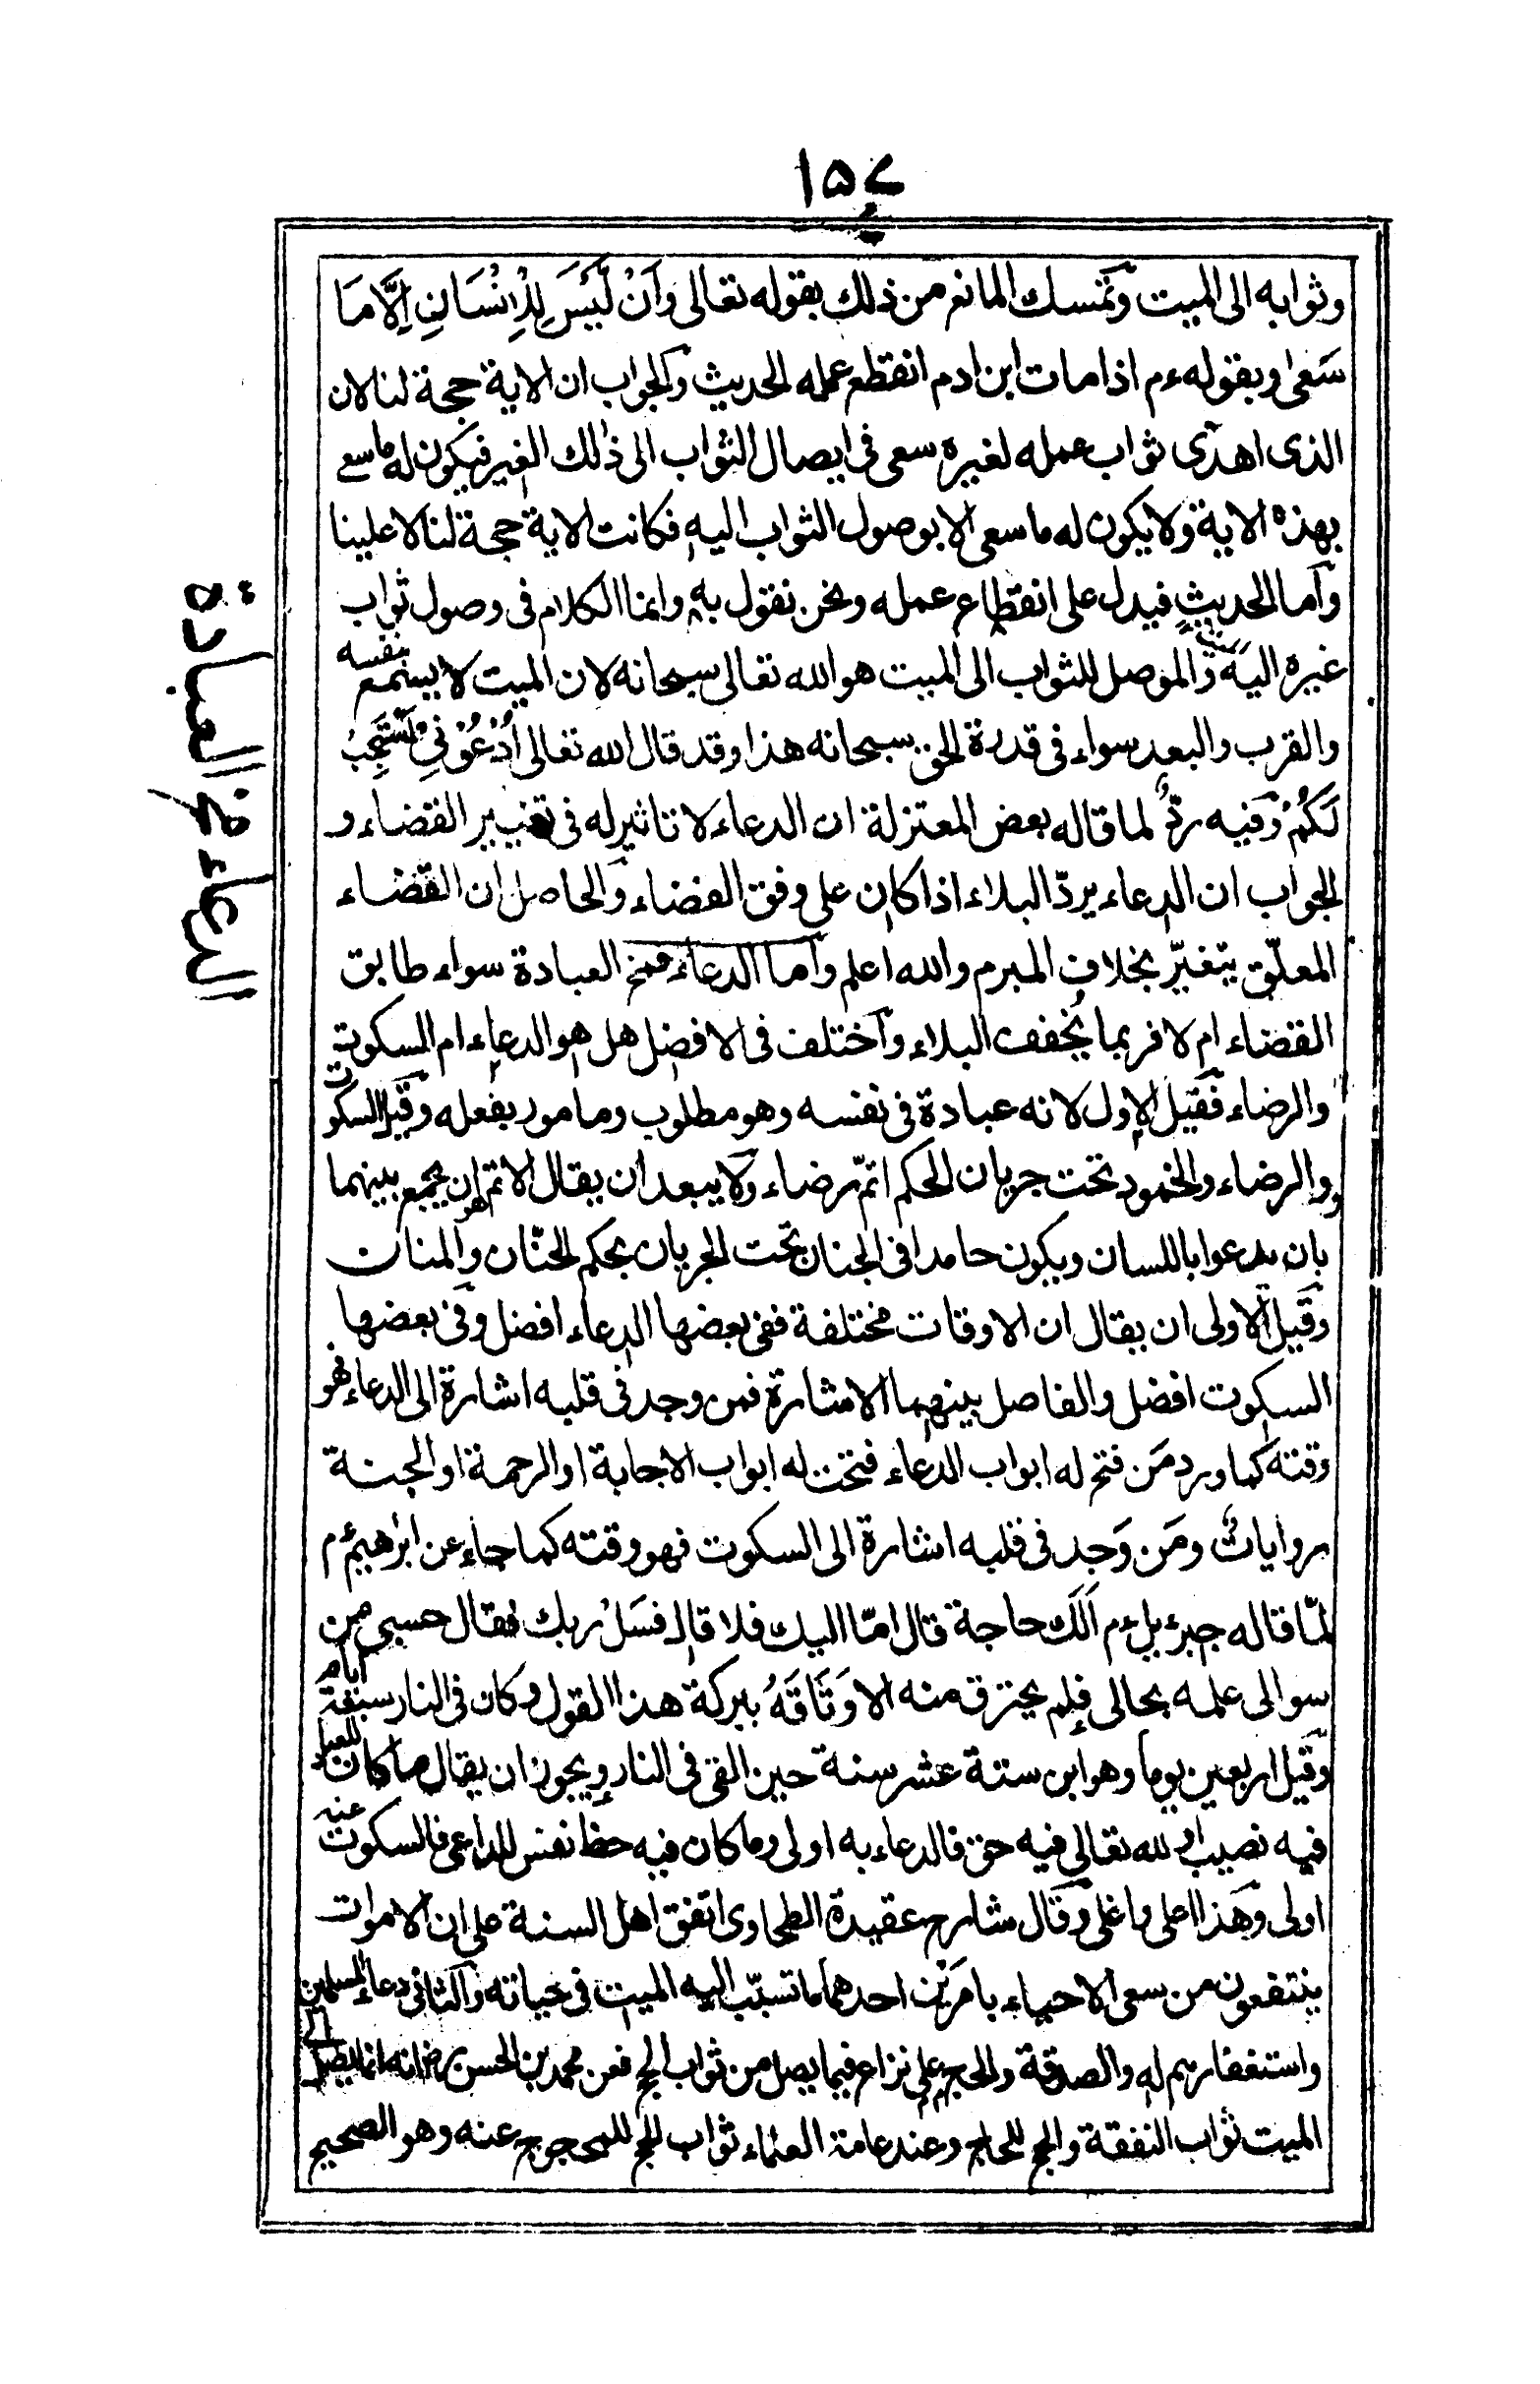 ١٥٧
وثوابه الى الميت وتمسك المانع من ذلك بقوله تعالى وَاَنْ لَّيْسَ لِلْاِنْسَانِ اِلَّا مَا
سَعٰى وبقوله ءم اذا مات ابن ادم انقطع عمله الحديث والجواب ان الاية حجة لنا لان
الذى اهدٰى ثواب عمله لغيره سعى فى ايصال الثواب الى ذٰلك الغير فيكون له ما سعى
بهذه الاية ولا يكون له ما سعى الا بوصول الثواب اليه فكانت الاية حجة لنا لا علينا
واما الحديث فيدل على انقطاع عمله ونحن نقول به وانما الكلام فى وصول ثواب
غيره اليه والموصل للثواب الى الميت هو الله تعالى سبحانه لان الميت لا يسمع بنفسه
والقرب والبعد سواء فى قدرة الحق سبحانه هذا وقد قال الله تعالى اُدْعُوْنِىْ اَسْتَجِبْ
لَكُمْ وفيه ردٌّ لما قاله بعض المعتزلة ان الدعاء لا تاثير له فى تغيير القضاء و
الجواب ان الدعاء يردّ البلاء اذا كان على وفق القضاء والحاصل ان القضاء
المعلّق يتغيّر بخلاف المبرم والله اعلم واما الدعاء مخ العبادة سواء طابق
القضاء ام لا فربما يُخفف البلاء واختلف فى الافضل هل هو الدعاء ام السكوت
والرضاء فقيل الاول لانه عبادة فى نفسه وهو مطلوب ومامور بفعله وقيل السكوت
والرضاء والخمود تحت جريان الحكم اتمّ رضاء ولا يبعد ان يقال الاتم هو ان يجمع بينهما
بان يدعوا باللسان ويكون حامدا فى الجنان تحت الجريان بحكم الحنّان والمنان
وقيل الاولى ان يقال ان الاوقات مختلفة ففى بعضها الدعاء افضل وفى بعضها
السكوت افضل والفاصل بينهما الاشارة فمن وجد فى قلبه اشارة الى الدعاء فهو
وقته كما ورد مَن فتح له ابواب الدعاء فتحت له ابواب الاجابة او الرحمة او الجنة
رواياتٌ ومَن وَجد فى قلبه اشارة الى السكوت فهو وقته كما جاء عن ابرٰهيم ءم
لمّا قال له جبرءيل ءم اَلَكَ حاجة قال امّا اليك فلا قال فسَلْ ربك فقال حسبى من
سوالى علمه بحالى فلم يحترق منه الا وَثَاقَهُ ببركة هذا القول وكان فى النار سبعة ايام
وقيل اربعين يوما وهو ابن ستة عشر سنة حين القى فى النار ويجوز ان يقال ما كان للعباد
فيه نصيب او لله تعالى فيه حق فالدعاء به اولى وما كان فيه حظ نفس للداعى فالسكوت عنه
اولى وهذا اعلى واغلى وقال شارح عقيدة الطحاوى اتفق اهل السنة على ان الاموات
ينتفعون من سعى الاحياء بامرَيْن احدهما ما تسبّب اليه الميت فى حياته والثانى دعاء المسلمين
واستغفارهم له والصدقة والحج على نزاع فيما يصل من ثواب الحج فعن محمد بن الحسن رض انه انما يصل الى
الميت ثواب النفقة والحج للحاج وعند عامة العلماء ثواب الحج للمحجوج عنه وهو الصحيح
الدعاء مخ العبادة